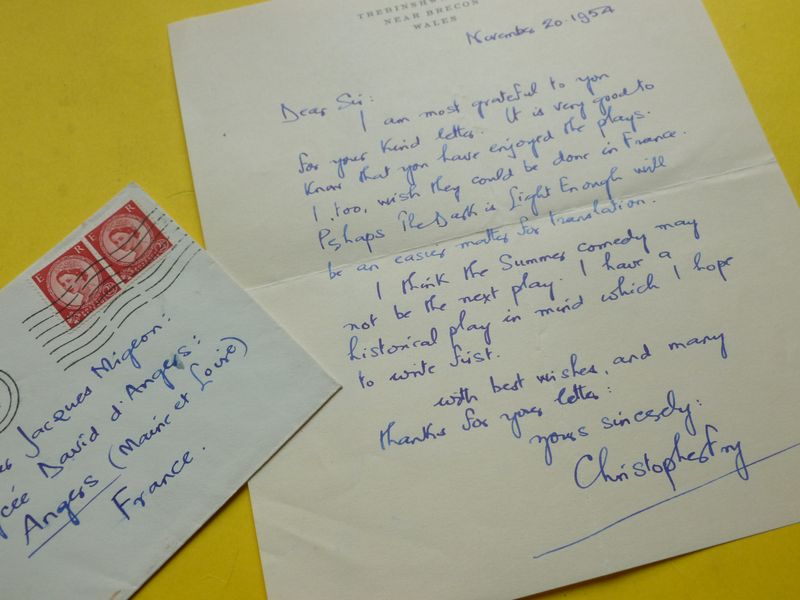 TREBINSHW
NEAR BRECON
WALES
November 20. 1954
Dear Sir:
I am most grateful to you
for your kind letter. It is very good to
know that you have enjoyed the plays.
I, too, wish they could be done in France.
Perhaps The Dark is Light Enough will
be an easier matter for translation.
I think the Summer comedy may
not be the next play. I have a
historical play in mind which I hope
to write first.
with best wishes, and many
thanks for your letter:
yours sincerely:
Christopher Fry
E R E R
Jacques Migeon:
cée David d'Angers:
Angers (Maine et Loire)
France.